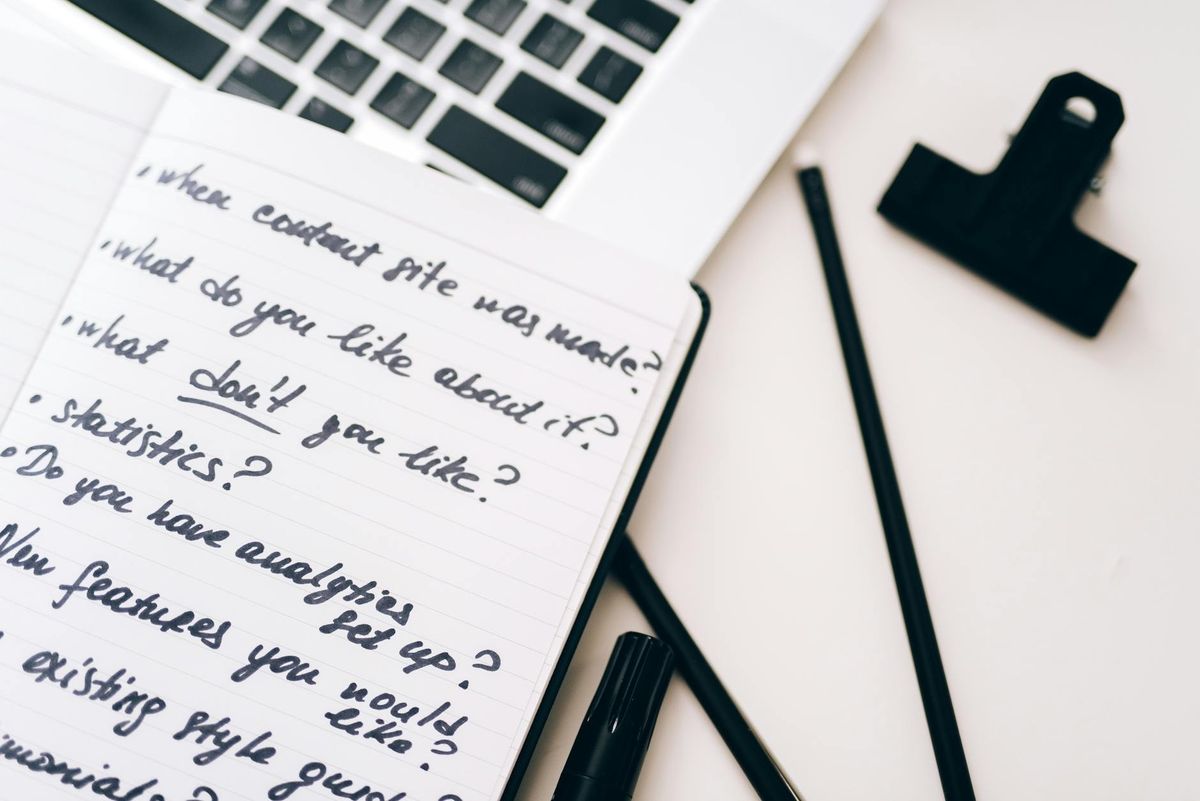 • when content site was made?
• what do you like about it?
• what don't you like?
• statistics?
• Do you have analytics
set up?
New features you would
like?
existing style guid
imonials?